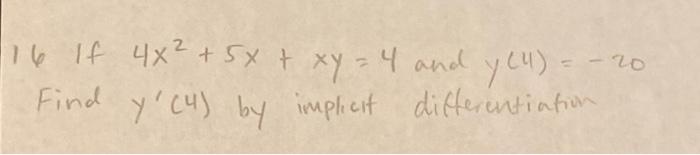 16 If 4x² + 5x + xy = 4 and y(4) = -20
Find y'(4) by implicit differentiation